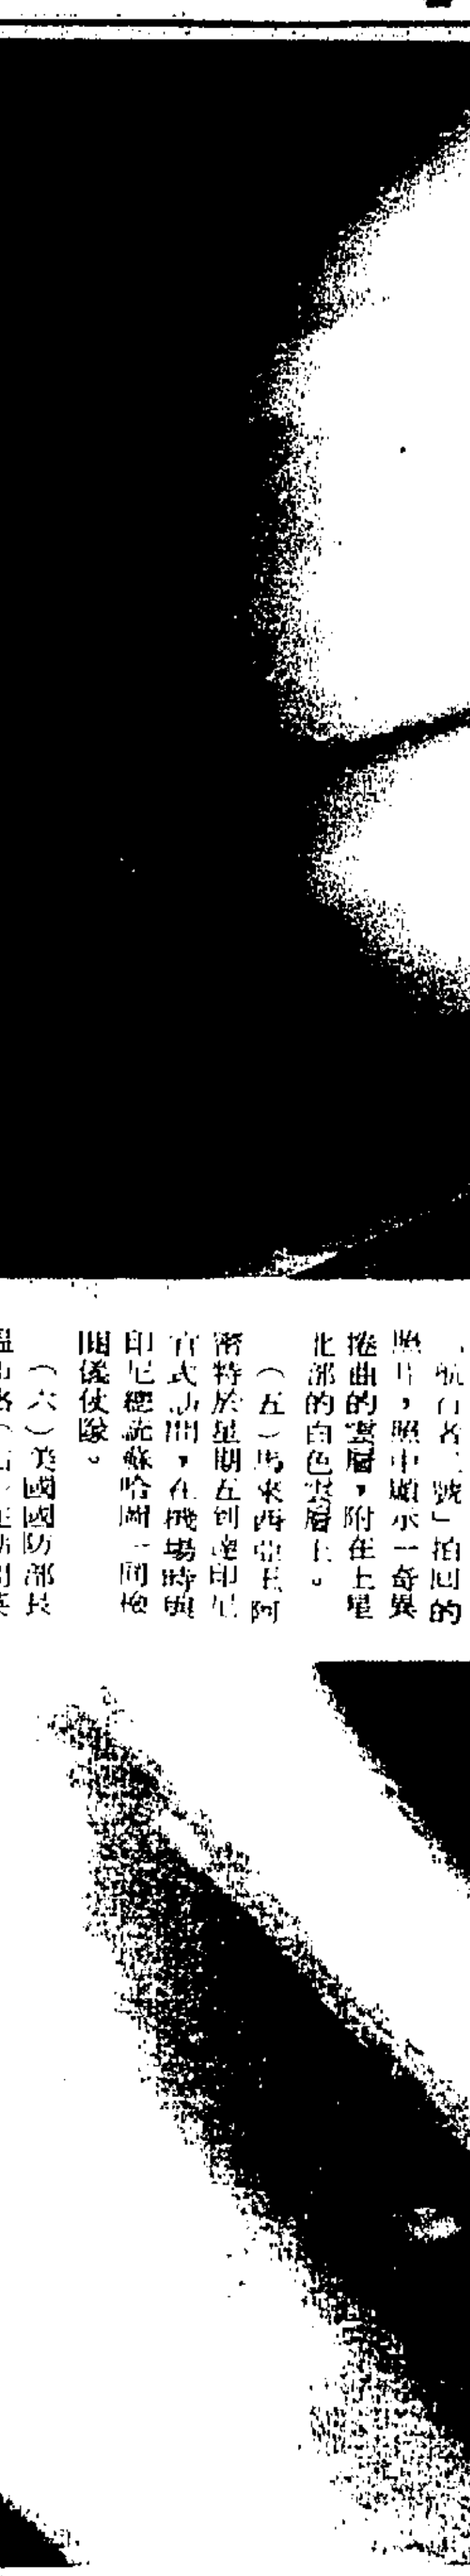 航行者二號」拍回的
照片，照中顯示一奇異
捲曲的雲層，附在土星
北部的白色雲層上。
（五）馬來西亞王阿
密特於星期五到達印尼
官式訪問，在機場時與
印尼總統蘇哈圖一同檢
閱儀仗隊。
（六）美國國防部長